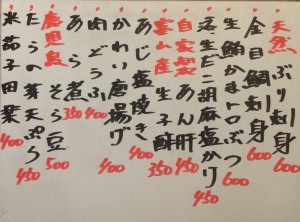 天然 ぶり刺身 600
金目鯛刺身 600
生鮪かまトロぶつ 600
活生だこ胡麻塩かり 450
自家製 あん肝 400
富山産 生子酢 350
あじ塩焼き 400
かれい唐揚げ 400
肉どうふ 400
あら煮 350
鹿児島 そら豆 500
たらの芽天ぷら 450
米茄子田楽 400